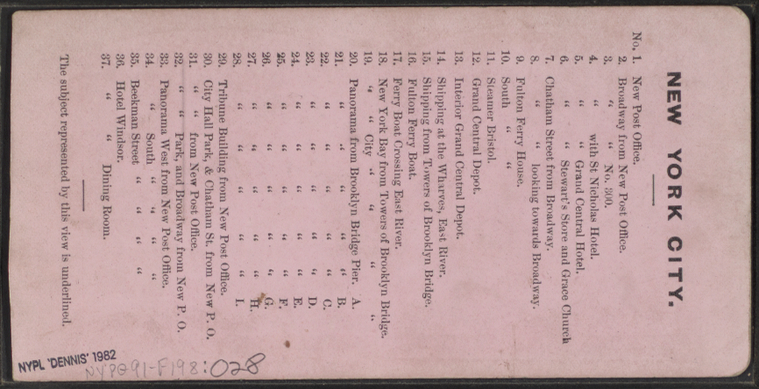 NEW YORK CITY.
No. 1. New Post Office.
2. Broadway from New Post Office.
3. " " No. 300.
4. " with St Nicholas Hotel.
5. " " Grand Central Hotel.
6. " " Stewart's Store and Grace Church
7. Chatham Street from Broadway.
8. " " looking towards Broadway.
9. Fulton Ferry House.
10. South " "
11. Steamer Bristol.
12. Grand Central Depot.
13. Interior Grand Central Depot.
14. Shipping at the Wharves, East River.
15. Shipping from Towers of Brooklyn Bridge.
16. Fulton Ferry Boat.
17. Ferry Boat Crossing East River.
18. New York Bay from Towers of Brooklyn Bridge.
19. " " City " " " "
20. Panorama from Brooklyn Bridge Pier. A.
21. " " " " " B.
22. " " " " " C.
23. " " " " " D.
24. " " " " " E.
25. " " " " " F.
26. " " " " " G.
27. " " " " " H.
28. " " " " " I.
29. Tribune Building from New Post Office.
30. City Hall Park, & Chatham St. from New P. O.
31. " " from New Post Office.
32. " " Park, and Broadway from New P. O.
33. Panorama West from New Post Office.
34. " South " " " "
35. Beekman Street " " " "
36. Hotel Windsor.
37. " " Dining Room.
The subject represented by this view is underlined.
NYPL 'DENNIS' 1982
NYPG91-F198:028